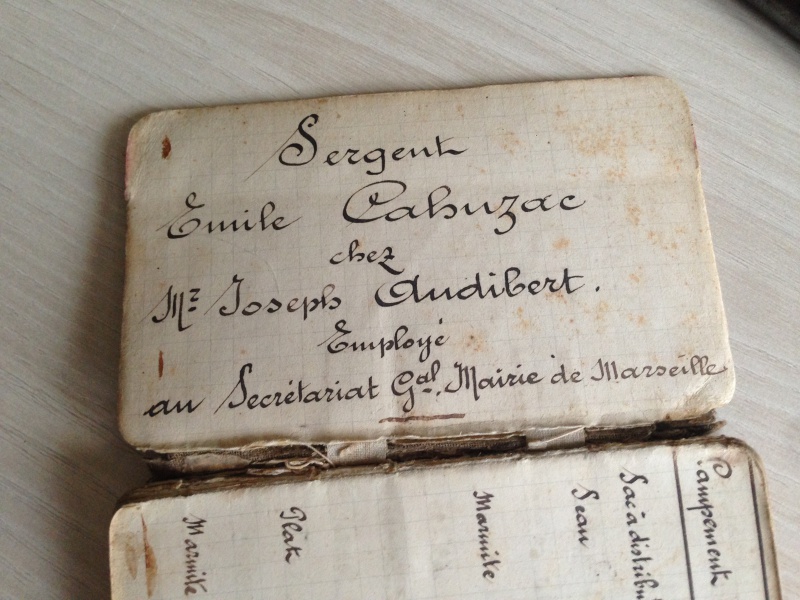 Sergent
Emile Cahuzac
chez
Mr Joseph Audibert.
Employé
au Secrétariat Gal. Mairie de Marseille
Campement
Sac à distribu
Seau
Marmite
Plat
Marmite